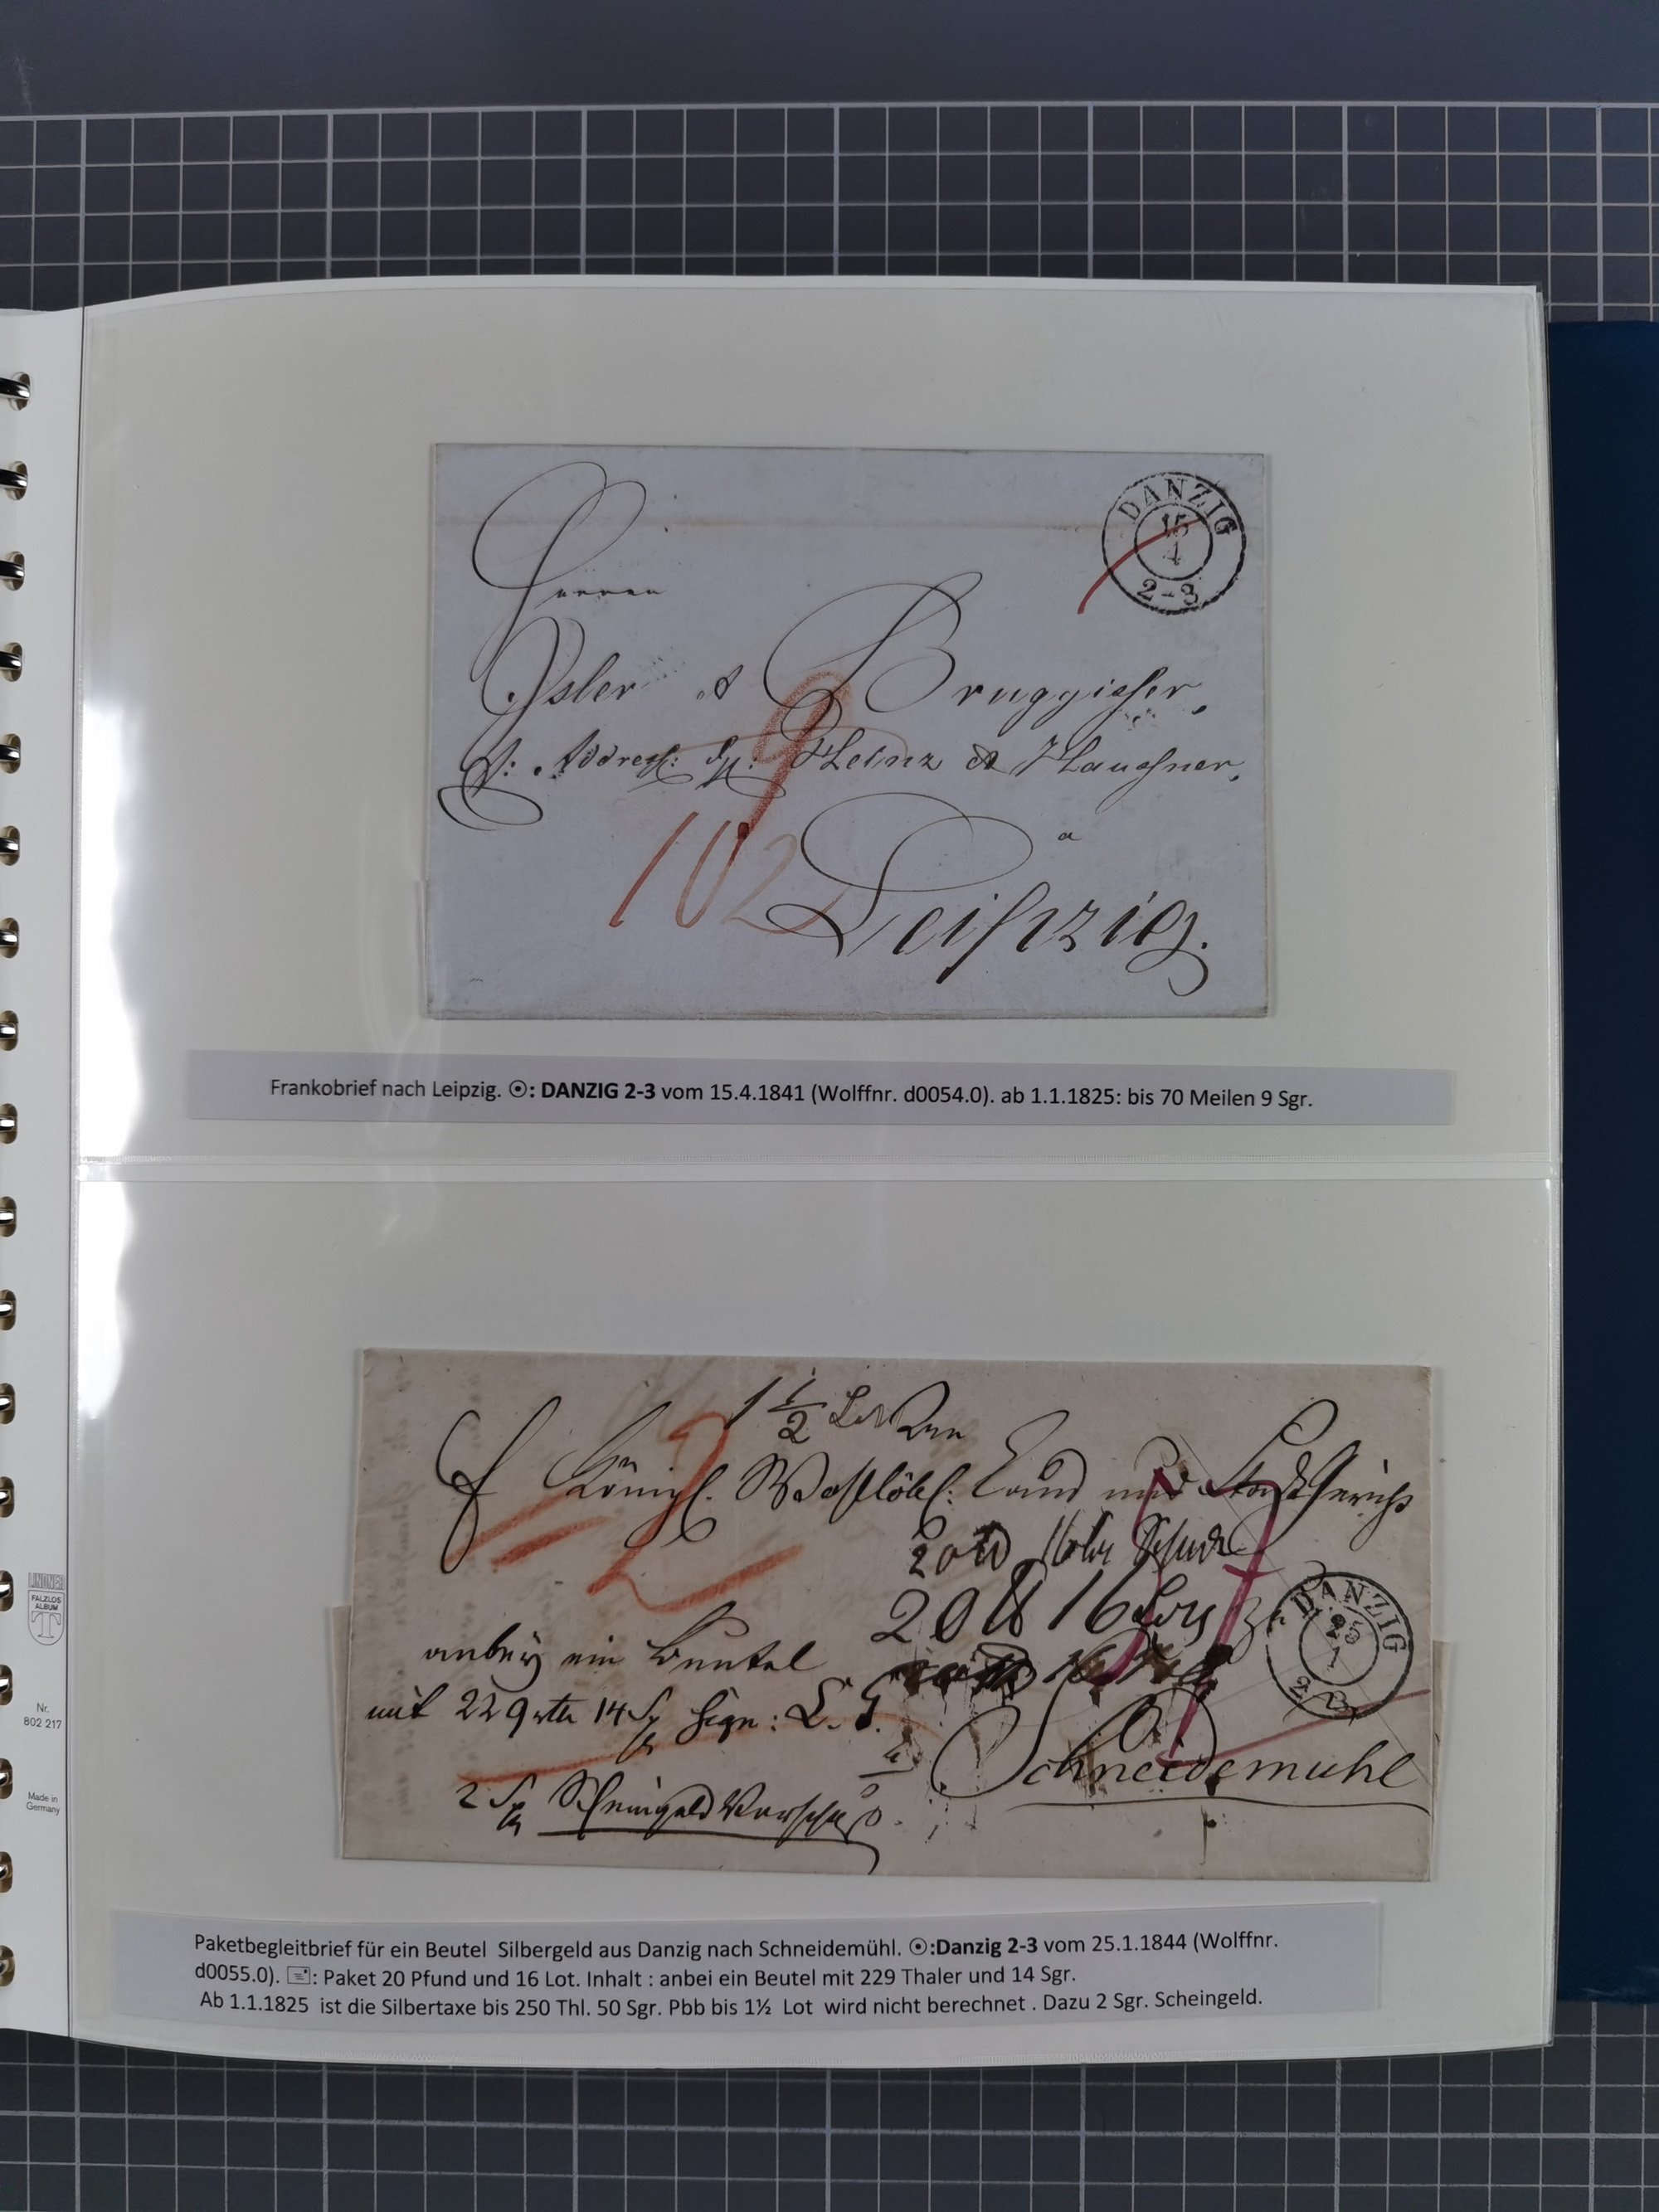 DANZIG
15
4
2-3
Herren
Isler & Bruggisser,
p: Addresse: Hr: Heinz & Haussner,
9
102
a
Leipzig.
Frankobrief nach Leipzig. ☉: DANZIG 2-3 vom 15.4.1841 (Wolffnr. d0054.0). ab 1.1.1825: bis 70 Meilen 9 Sgr.
1 1/2 Loth
Königl. Wohllöbl: Land und Stadt Gericht
20 16
20 ℔ 16 Loth
DANZIG
25
1
2-3
anbey ein Beutel
mit 229 rth 14 Sg Sign: L. G.
Schneidemühl
2 Sg Scheingeld Vorschuß.
Paketbegleitbrief für ein Beutel Silbergeld aus Danzig nach Schneidemühl. ☉:Danzig 2-3 vom 25.1.1844 (Wolffnr.
d0055.0). 🖃: Paket 20 Pfund und 16 Lot. Inhalt : anbei ein Beutel mit 229 Thaler und 14 Sgr.
Ab 1.1.1825 ist die Silbertaxe bis 250 Thl. 50 Sgr. Pbb bis 1½ Lot wird nicht berechnet . Dazu 2 Sgr. Scheingeld.
LINDNER
FALZLOS
ALBUM
T
Nr.
802 217
Made in
Germany